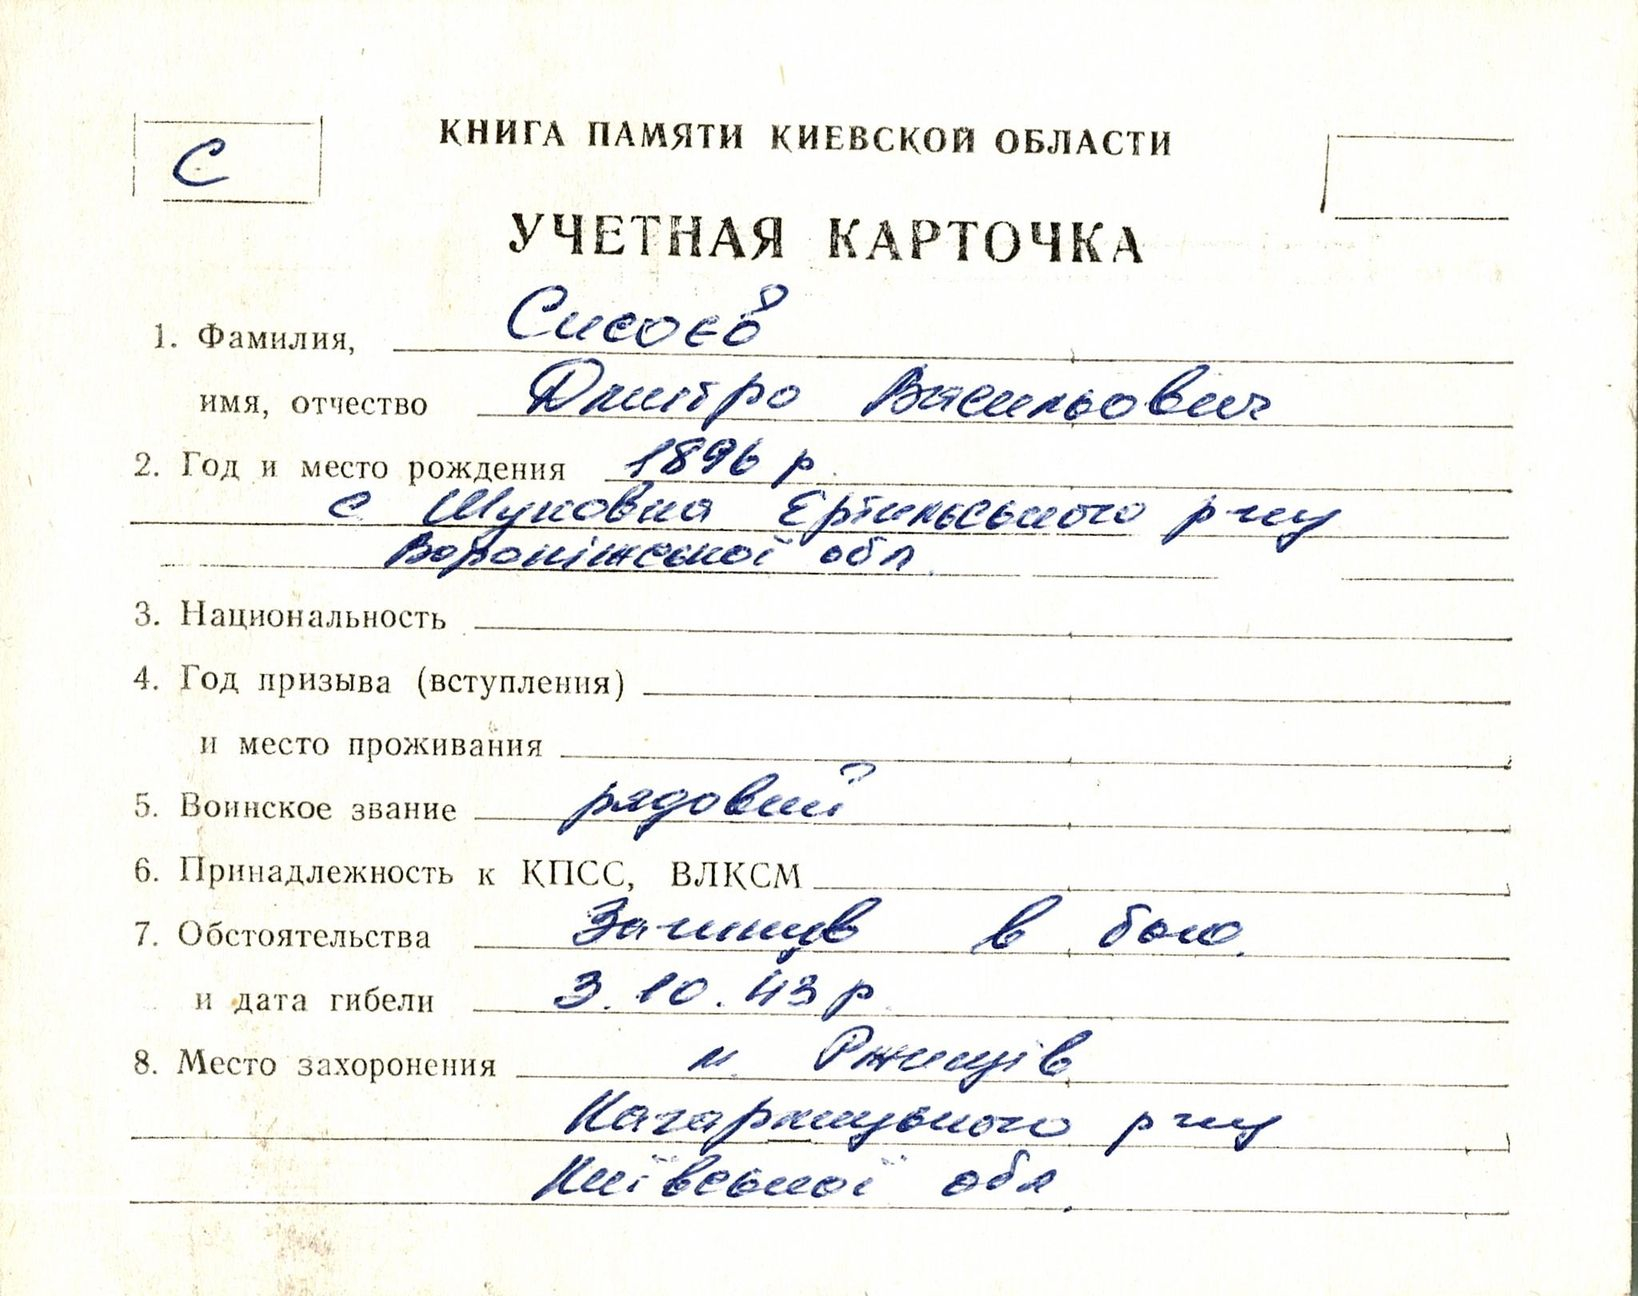 С
КНИГА ПАМЯТИ КИЕВСКОЙ ОБЛАСТИ
УЧЕТНАЯ КАРТОЧКА
1. Фамилия, Сисоєв
имя, отчество Дмитро Васильович
2. Год и место рождения 1896 р.
с Щуковка Ертильського р-ну
Воронізької обл.
3. Национальность
4. Год призыва (вступления)
и место проживания
5. Воинское звание рядовий
6. Принадлежность к КПСС, ВЛКСМ
7. Обстоятельства Загинув в бою.
и дата гибели 3.10.43 р.
8. Место захоронения м. Ржищів
Кагарлицького р-ну
Київської обл.